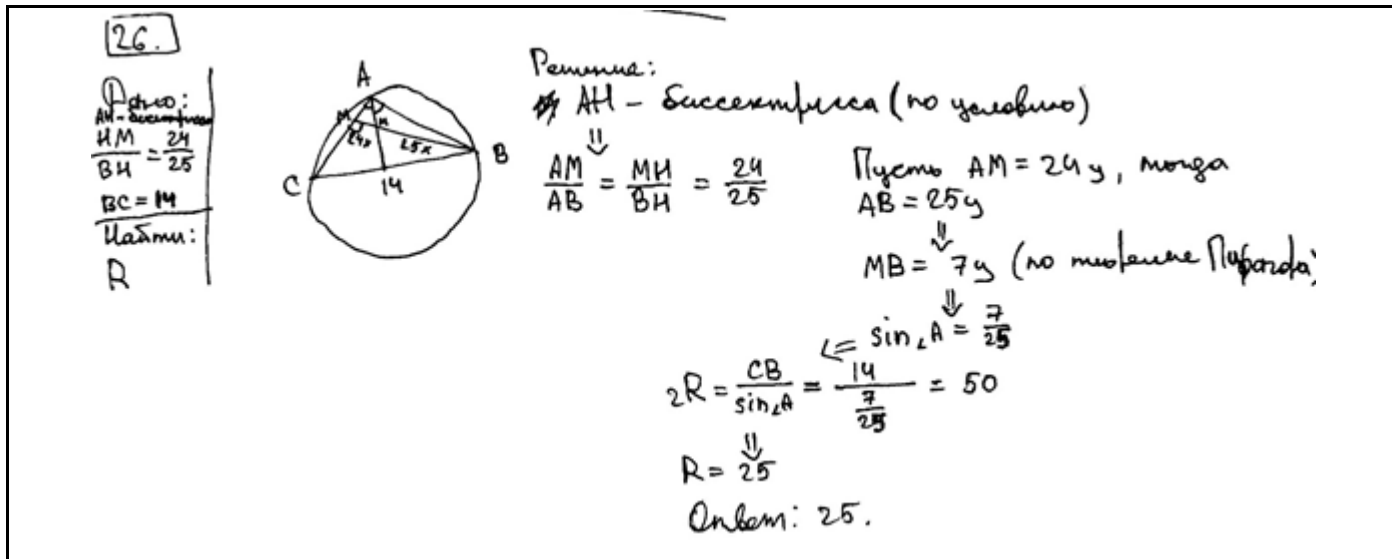 26.
Дано:
AH - биссектриса
HM/BH = 24/25
BC = 14
Найти:
R
A
M
H
24x
25x
C
B
14
Решение:
AH - биссектриса (по условию)
⇓
AM/AB = MH/BH = 24/25
Пусть AM = 24y, тогда
AB = 25y
⇓
MB = 7y (по теореме Пифагора)
⇓
⇐ sin∠A = 7/25
2R = CB/sin∠A = 14/(7/25) = 50
⇓
R = 25
Ответ: 25.